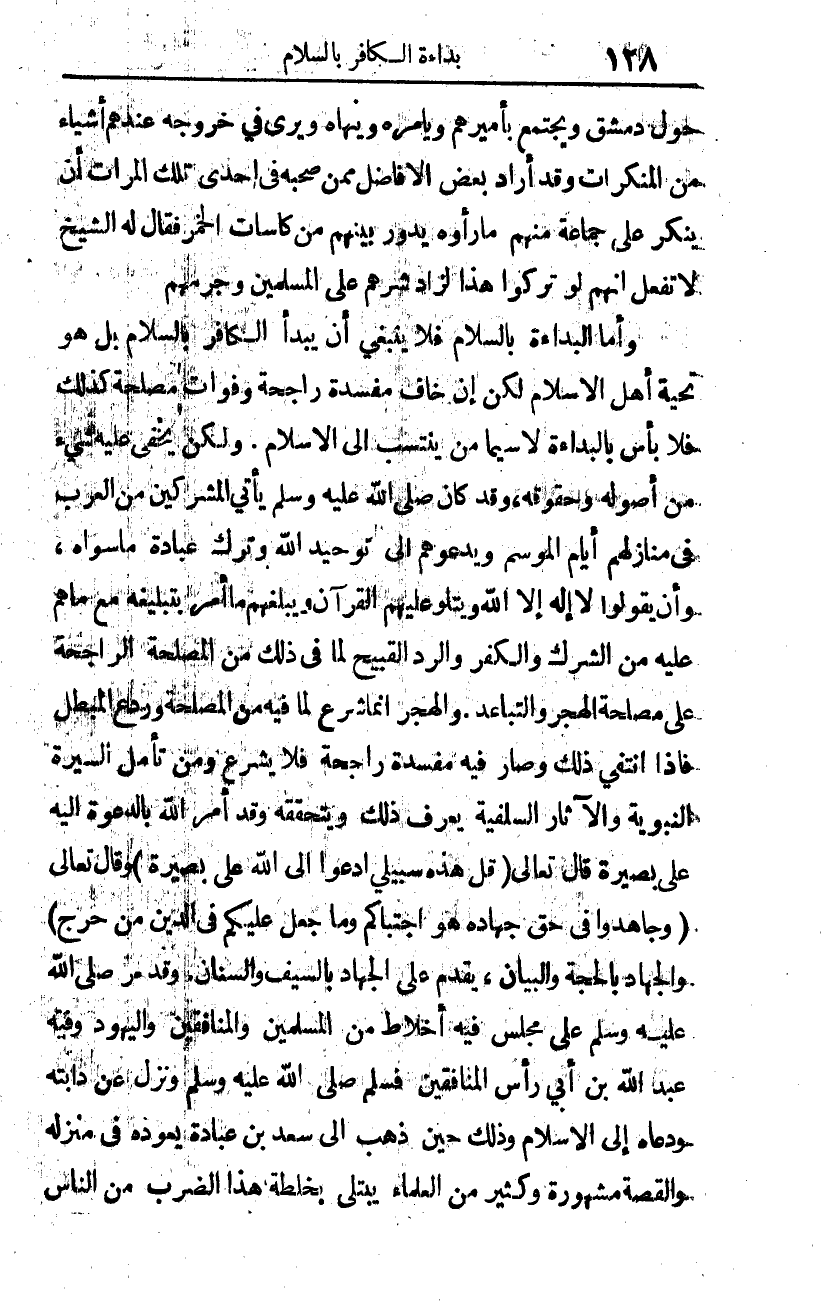 ١٣٨ بداءة الكافر بالسلام
حول دمشق ويجتمع بأميرهم ويامره وينهاه ويرى في خروجه عندهم أشياء
من المنكرات وقد أراد بعض الافاضل ممن صحبه فى إحدى تلك المرات أن
ينكر على جماعة منهم مارأوه يدور بينهم من كاسات الخمر فقال له الشيخ
لا تفعل انهم لو تركوا هذا لزاد شرهم على المسلمين وجرمهم
وأما البداءة بالسلام فلا ينبغي أن يبدأ الكافر بالسلام بل هو
تحية أهل الاسلام لكن إن خاف مفسدة راجحة وفوات مصلحة كذلك
فلا بأس بالبداءة لاسيما من ينتسب الى الاسلام . ولكن يخفى عليه شيء
من أصوله وحقوقه، وقد كان صلى الله عليه وسلم يأتي المشركين من العرب
فى منازلهم أيام الموسم ويدعوهم الى توحيد الله وترك عبادة ماسواه ،
وأن يقولوا لا إله إلا الله ويتلو عليهم القرآن ويبلغهم ما أمر بتبليغه مع ماهم
عليه من الشرك والكفر والرد القبيح لما فى ذلك من المصلحة الراجحة
على مصلحة الهجر والتباعد . والهجر انما شرع لما فيه من المصلحة وردع المبطل
فاذا انتفي ذلك وصار فيه مفسدة راجحة فلا يشرع ومن تأمل السيرة
النبوية والآثار السلفية يعرف ذلك ويتحققه وقد أمر الله بالدعوة اليه
على بصيرة قال تعالى ( قل هذه سبيلي ادعوا الى الله على بصيرة ) وقال تعالى
( وجاهدوا فى حق جهاده هو اجتباكم وما جعل عليكم فى الدين من حرج )
والجهاد بالحجة والبيان ، يقدم على الجهاد بالسيف والسنان. وقد مر صلى الله
عليه وسلم على مجلس فيه أخلاط من المسلمين والمنافقين واليهود وفيه
عبد الله بن أبي رأس المنافقين فسلم صلى الله عليه وسلم ونزل عن دابته
ودعاه إلى الاسلام وذلك حين ذهب الى سعد بن عبادة يعوده فى منزله
والقصة مشهورة وكثير من العلماء يبتلى بخلطة هذا الضرب من الناس